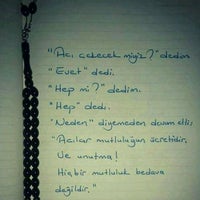 "Acı çekecek miyiz?" dedim
"Evet" dedi.
"Hep mi?" dedim.
"Hep" dedi.
"Neden" diyemeden devam etti:
"Acılar mutluluğun ücretidir,
Ve unutma!
Hiçbir mutluluk bedava
değildir."